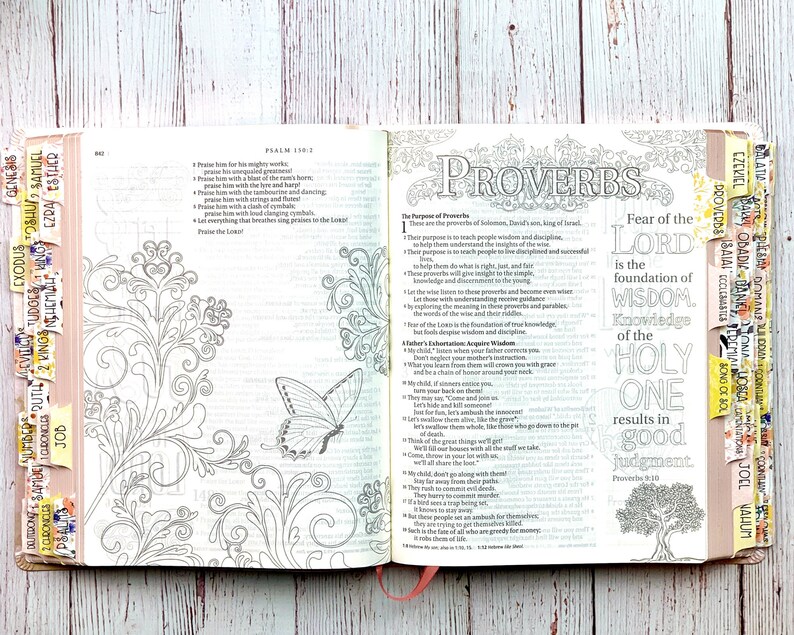 GENESIS
2 SAMUEL
ESTHER
JOSHUA
EZRA
EXODUS
2 KINGS
JUDGES
NEHEMIAH
RUTH
NUMBERS
1 CHRONICLES
JOB
SAMUEL
2 CHRONICLES
PSALMS
642
PSALM 150:2
2 Praise him for his mighty works;
praise his unequaled greatness!
3 Praise him with a blast of the ram's horn;
praise him with the lyre and harp!
4 Praise him with the tambourine and dancing;
praise him with strings and flutes!
5 Praise him with a clash of cymbals;
praise him with loud clanging cymbals.
6 Let everything that breathes sing praises to the LORD!
Praise the LORD!
PROVERBS
The Purpose of Proverbs
1 These are the proverbs of Solomon, David's son, king of Israel.
2 Their purpose is to teach people wisdom and discipline,
to help them understand the insights of the wise.
3 Their purpose is to teach people to live disciplined and successful
lives,
to help them do what is right, just, and fair.
4 These proverbs will give insight to the simple,
knowledge and discernment to the young.
5 Let the wise listen to these proverbs and become even wiser.
Let those with understanding receive guidance
6 by exploring the meaning in these proverbs and parables,
the words of the wise and their riddles.
7 Fear of the LORD is the foundation of true knowledge,
but fools despise wisdom and discipline.
A Father's Exhortation: Acquire Wisdom
8 My child,* listen when your father corrects you.
Don't neglect your mother's instruction.
9 What you learn from them will crown you with grace
and be a chain of honor around your neck.
10 My child, if sinners entice you,
turn your back on them!
11 They may say, "Come and join us.
Let's hide and kill someone!
Just for fun, let's ambush the innocent!
12 Let's swallow them alive, like the grave*;
let's swallow them whole, like those who go down to the pit
of death.
13 Think of the great things we'll get!
We'll fill our houses with all the stuff we take.
14 Come, throw in your lot with us;
we'll all share the loot."
15 My child, don't go along with them!
Stay far away from their paths.
16 They rush to commit evil deeds.
They hurry to commit murder.
17 If a bird sees a trap being set,
it knows to stay away.
18 But these people set an ambush for themselves;
they are trying to get themselves killed.
19 Such is the fate of all who are greedy for money;
it robs them of life.
1:8 Hebrew My son; also in 1:10, 15. 1:12 Hebrew like Sheol.
Fear of the
LORD
is the
foundation of
WISDOM.
Knowledge
of the
HOLY
ONE
results in
good
judgment.
Proverbs 9:10
EZEKIEL
PROVERBS
ISAIAH
OBADIAH
ECCLESIASTES
DANIEL
JEREMIAH
SONG OF SOL
HOSEA
JOEL
NAHUM